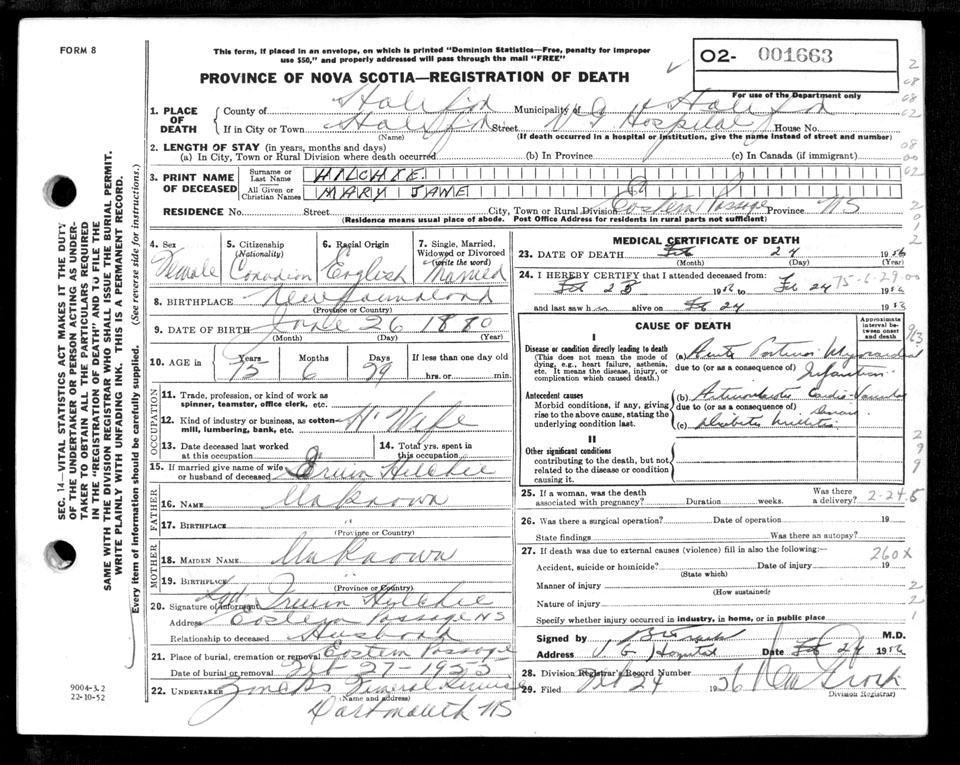 FORM 8
This form, if placed in an envelope, on which is printed "Dominion Statistics—Free, penalty for improper
use $50," and properly addressed will pass through the mail "FREE"
O2- 001663
For use of the Department only
PROVINCE OF NOVA SCOTIA—REGISTRATION OF DEATH
1. PLACE OF DEATH
County of Halifax Municipality of Halifax
If in City or Town Halifax Street V G Hospital House No.
(Name) (If death occurred in a hospital or institution, give the name instead of street and number)
2. LENGTH OF STAY (in years, months and days)
(a) In City, Town or Rural Division where death occurred (b) In Province (c) In Canada (if immigrant)
3. PRINT NAME OF DECEASED
Surname or Last Name HILCHIE.
All Given or Christian Names MARY JANE
RESIDENCE No. Street City, Town or Rural Division Eastern Passage Province NS
(Residence means usual place of abode. Post Office Address for residents in rural parts not sufficient)
4. Sex Female
5. Citizenship (Nationality) Canadian
6. Racial Origin English
7. Single, Married, Widowed or Divorced (write the word) Married
8. BIRTHPLACE Newfoundland
(Province or Country)
9. DATE OF BIRTH June 26 1880
(Month) (Day) (Year)
10. AGE in Years 75 Months 6 Days 29 If less than one day old
hrs. or min.
OCCUPATION
11. Trade, profession, or kind of work as
spinner, teamster, office clerk, etc.
12. Kind of industry or business, as cotton-
mill, lumbering, bank, etc. H' Wife
13. Date deceased last worked
at this occupation
14. Total yrs. spent in
this occupation
15. If married give name of wife
or husband of deceased Irwin Hilchie
FATHER
16. NAME Unknown
17. BIRTHPLACE "
(Province or Country)
MOTHER
18. MAIDEN NAME Unknown
19. BIRTHPLACE "
(Province or Country)
20. Signature of informant Sgd. Irwin Hilchie
Address Eastern Passage NS
Relationship to deceased Husband
21. Place of burial, cremation or removal Eastern Passage
Date of burial or removal Feb 27-1955
22. UNDERTAKER Funeral Service
(Name and address)
Dartmouth NS
MEDICAL CERTIFICATE OF DEATH
23. DATE OF DEATH Feb 24 1956
(Month) (Day) (Year)
24. I HEREBY CERTIFY that I attended deceased from:
Feb 23 1956 to Feb 24 1956
75-6-29 00
and last saw h alive on Feb 24 19
CAUSE OF DEATH
Approximate interval between onset and death
I
Disease or condition directly leading to death
(This does not mean the mode of
dying, e.g., heart failure, asthenia,
etc. It means the disease, injury, or
complication which caused death.)
(a) Acute Posterior Myocardial
due to (or as a consequence of) Infarction
Antecedent causes
Morbid conditions, if any, giving
rise to the above cause, stating the
underlying condition last.
(b) Arteriosclerotic Cardio-Vascular
due to (or as a consequence of) Disease
(c) Diabetes Mellitus
II
Other significant conditions
contributing to the death, but not
related to the disease or condition
causing it.
25. If a woman, was the death
associated with pregnancy? Duration weeks. Was there
a delivery?
26. Was there a surgical operation? Date of operation 19
State findings Was there an autopsy?
27. If death was due to external causes (violence) fill in also the following:—
260X
Accident, suicide or homicide? Date of injury 19
(State which)
Manner of injury
(How sustained)
Nature of injury
Specify whether injury occurred in industry, in home, or in public place
Signed by M.D.
Address V G Hospital Date Feb 24 1956
28. Division Registrar's Record Number
29. Filed Feb 24 1956
Division Registrar
9004-3.2
22-10-52
SEC. 14—VITAL STATISTICS ACT MAKES IT THE DUTY
OF THE UNDERTAKER OR PERSON ACTING AS UNDER-
TAKER TO OBTAIN ALL THE PARTICULARS REQUIRED
IN THE "REGISTRATION OF DEATH" AND TO FILE THE
SAME WITH THE DIVISION REGISTRAR WHO SHALL ISSUE THE BURIAL PERMIT.
WRITE PLAINLY WITH UNFADING INK. THIS IS A PERMANENT RECORD.
Every item of information should be carefully supplied. (See reverse side for instructions.)